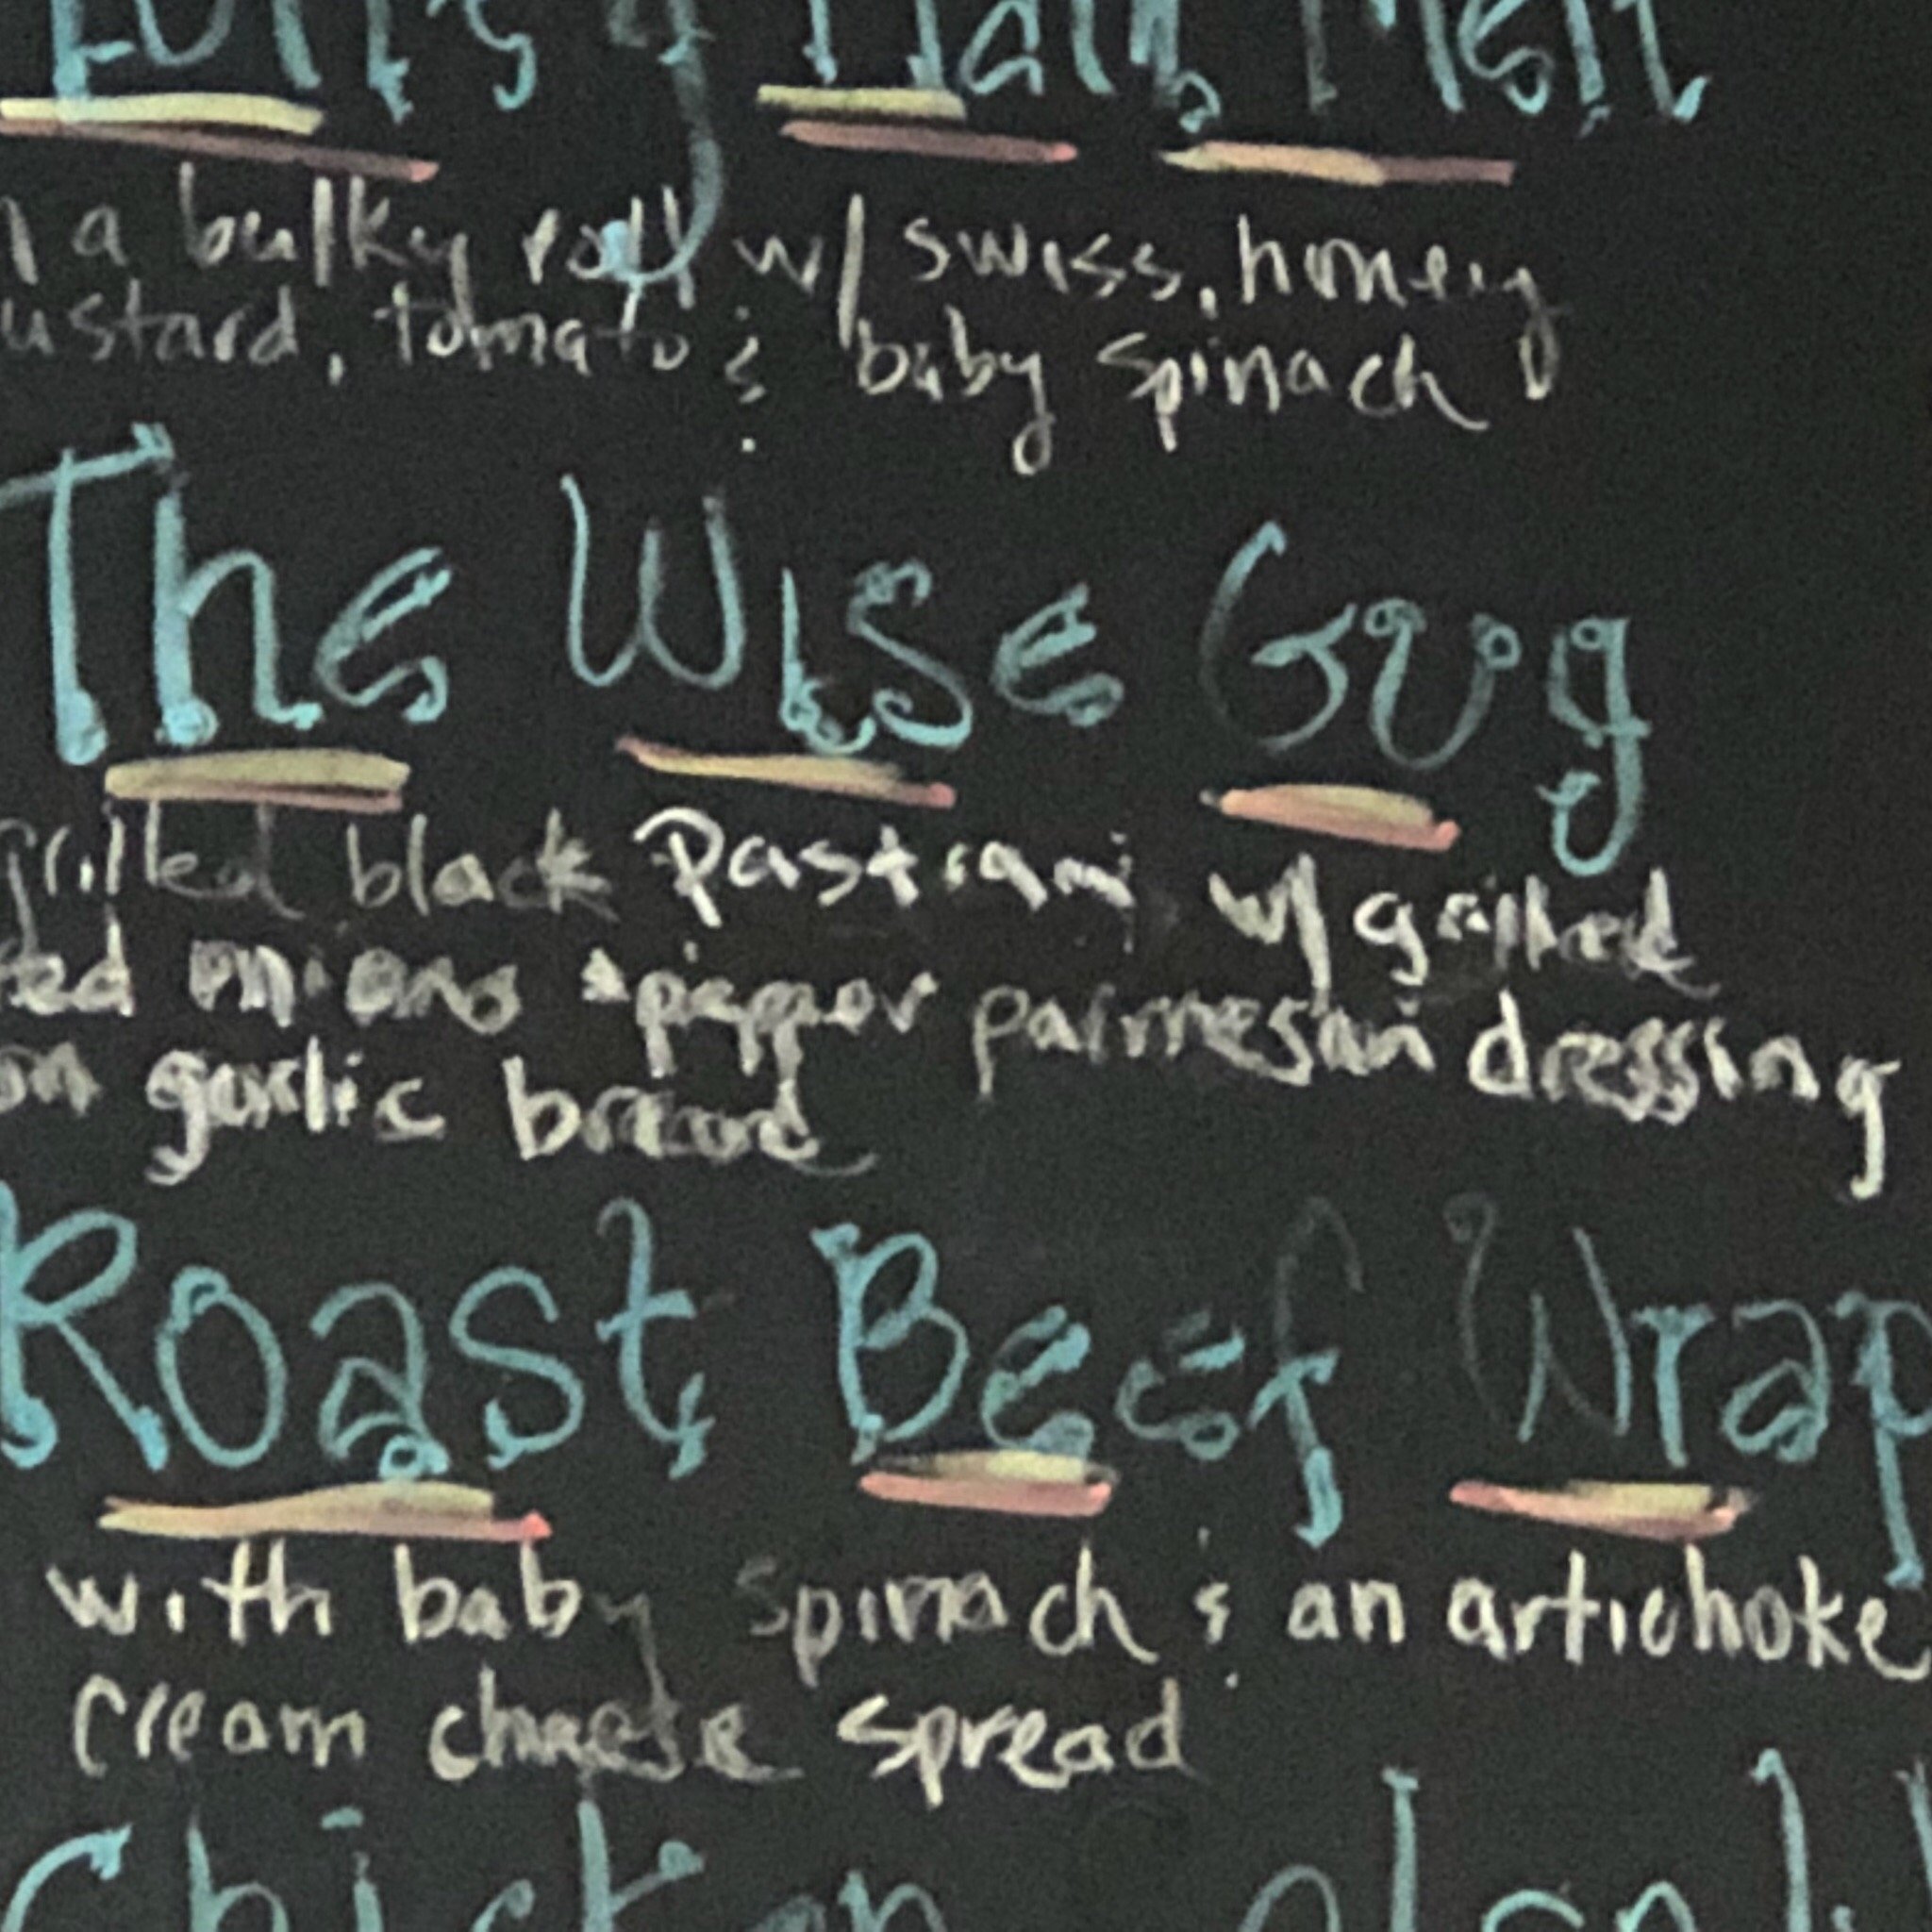 Ham Melt
a bulky roll w/ swiss, honey
ustard, tomato & baby spinach
The Wise Guy
grilled black Pastrami w/ grilled
red onions & pepper parmesan dressing
on garlic bread
Roast Beef Wrap
with baby spinach & an artichoke
cream cheese spread
Chicken